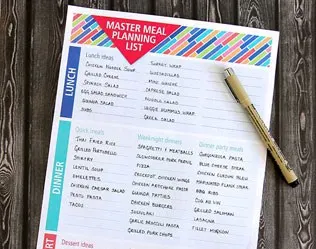 MASTER MEAL
PLANNING
LIST
LUNCH
Lunch ideas
CHICKEN NOODLE SOUP
GRILLED CHEESE
SPINACH SALAD
EGG SALAD SANDWICH
SALAD
SUBS
TURKEY WRAP
QUESADILLAS
MINI
CAPRESE SALAD
SALAD
VEGGIE HUMMUS WRAP
GREEK SALAD
DINNER
Quick meals
THAI FRIED RICE
GRILLED PORTOBELLO
LENTIL SOUP
OMELETTES
CHICKEN CAESAR SALAD
PESTO PASTA
TACOS
Weeknight dinners
SPAGHETTI & MEATBALLS
PORK
PIZZA
CROCKPOT CHICKEN WINGS
CHICKEN
CHICKEN BURGERS
GARLIC BROCCOLI PASTA
GRILLED PORK CHOPS
Dinner party meals
GORGONZOLA PASTA
BLUE CHEESE STEAK
CHICKEN CORDON BLEU
MARINATED FLANK STEAK
BBQ RIBS
COQ AU VIN
GRILLED SALMON
LASAGNA
FILLET MIGNON
Dessert ideas